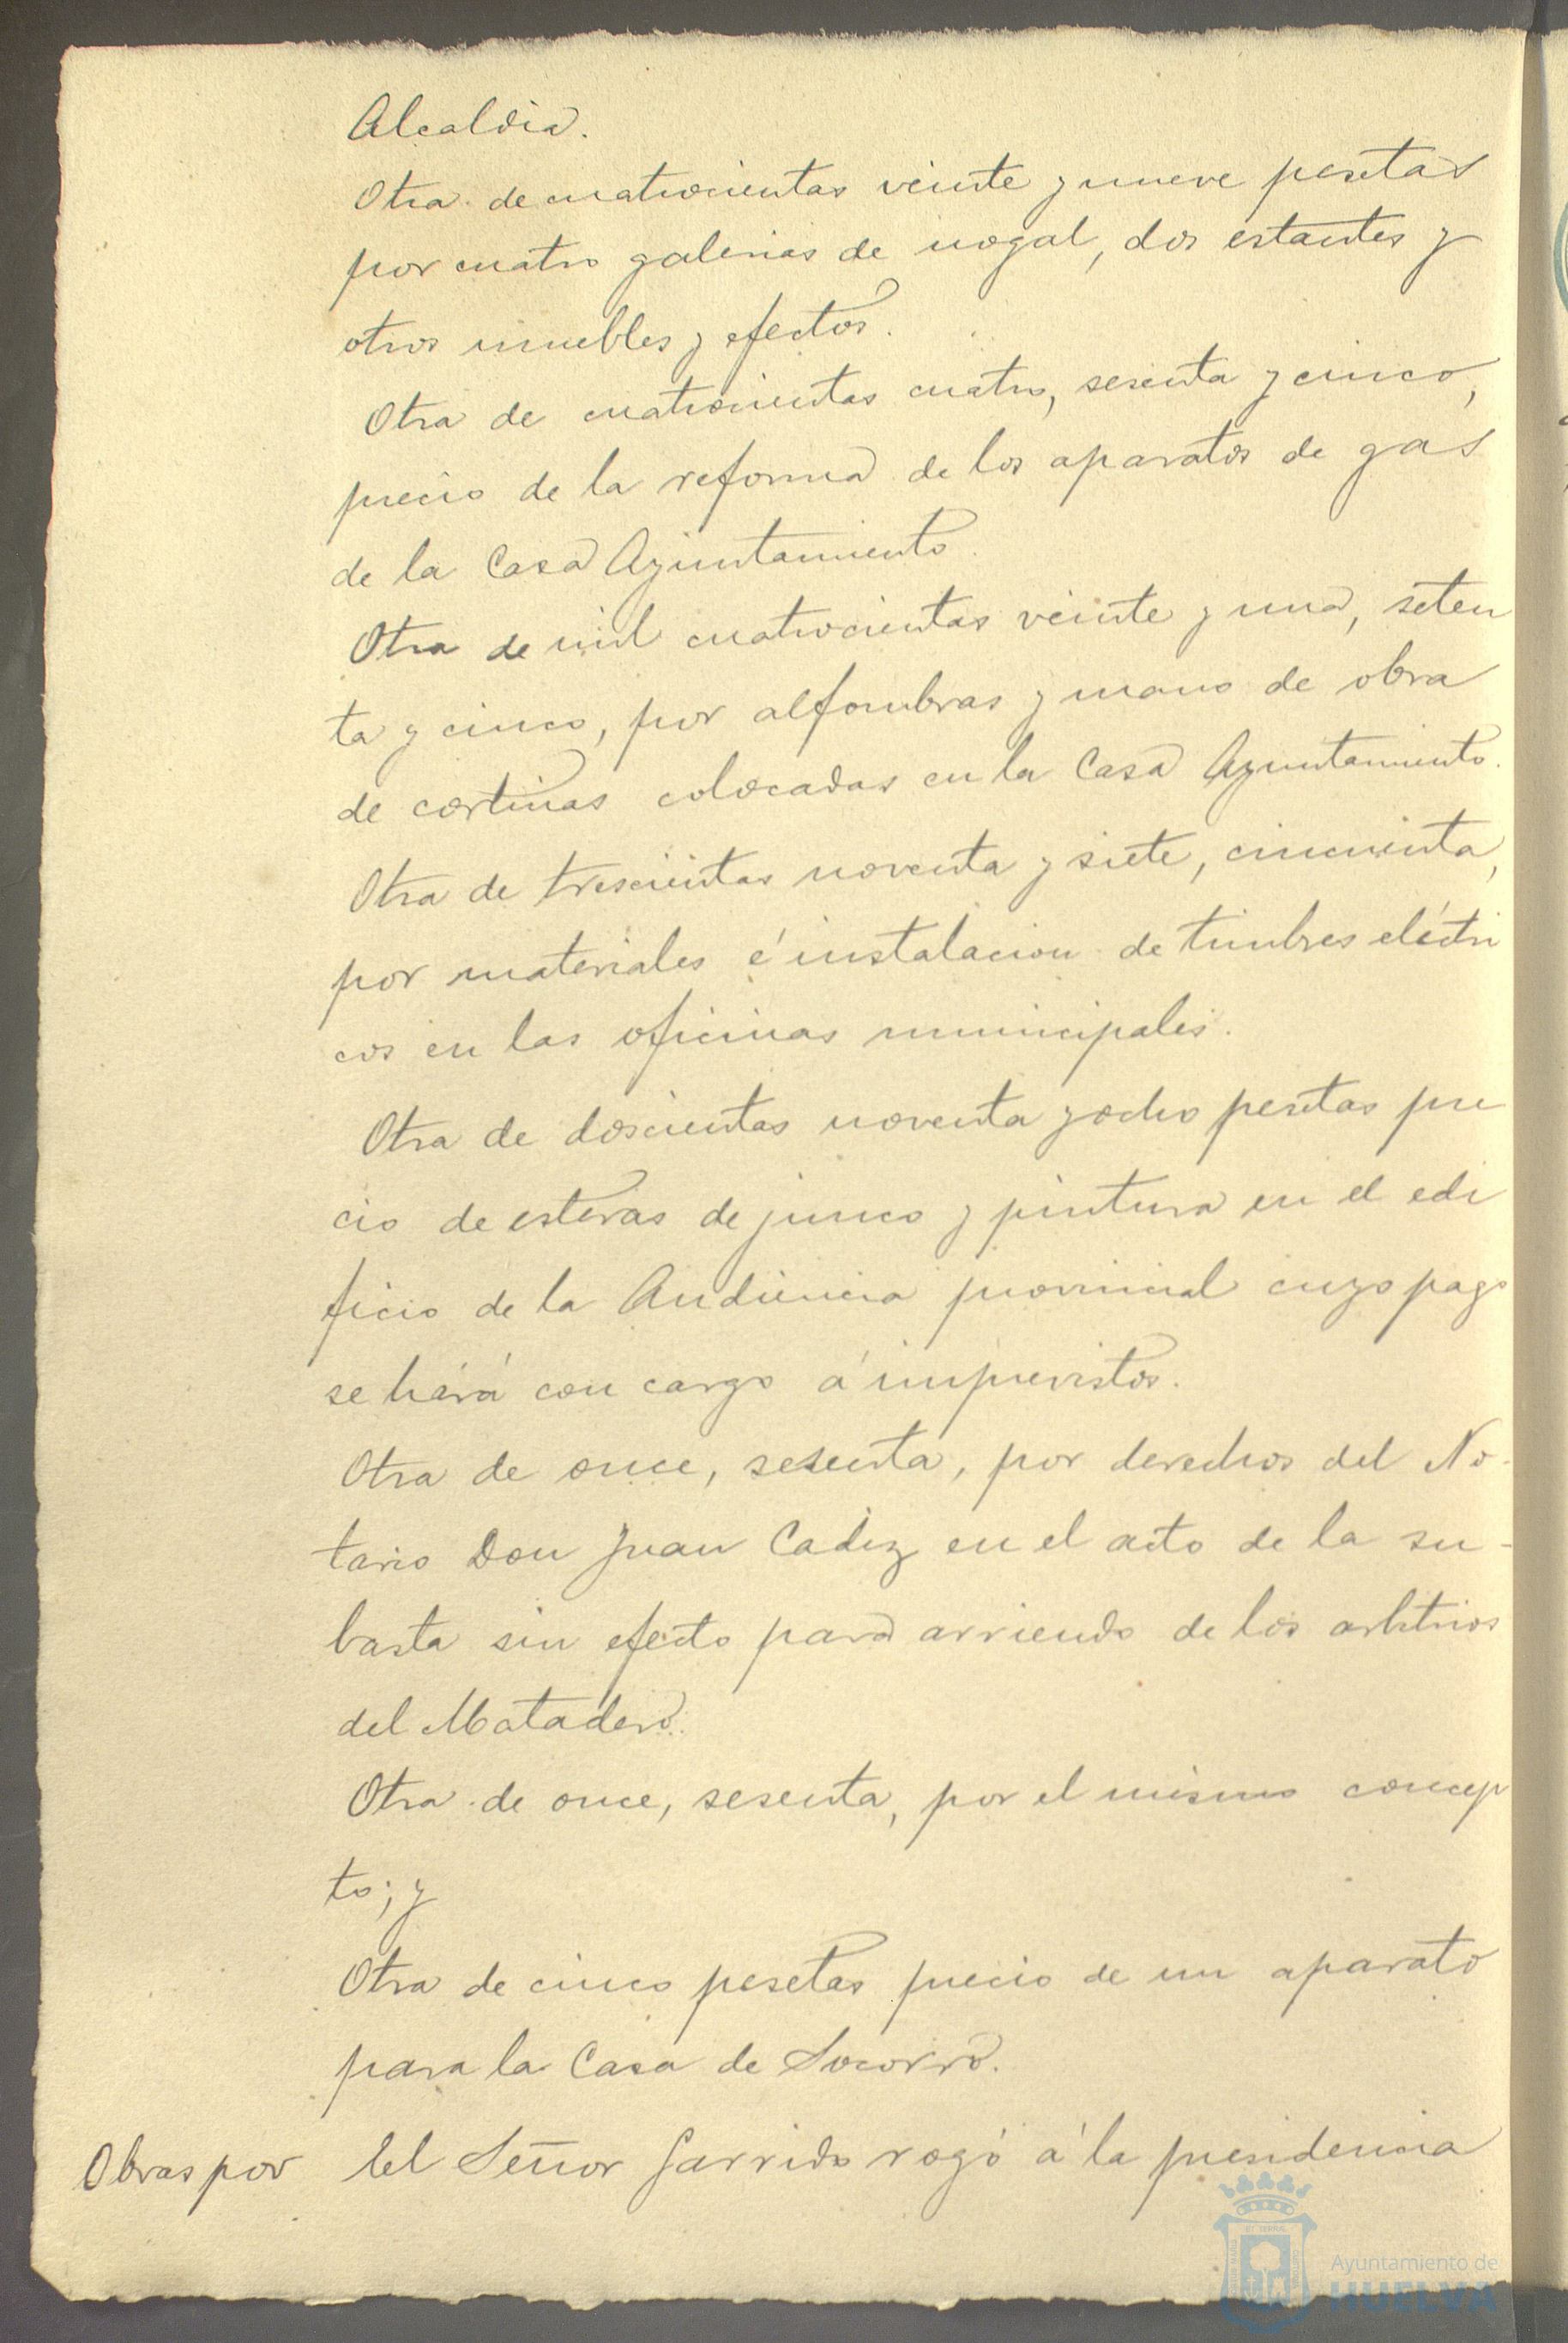 Alcaldia.
Otra de cuatrocientas veinte y nueve pesetas
por cuatro galerias de nogal, dos estantes y
otros muebles y efectos.
Otra de cuatrocientas cuatro, sesenta y cinco,
precio de la reforma de los aparatos de gas
de la Casa Ayuntamiento.
Otra de mil cuatrocientas veinte y una, seten
ta y cinco, por alfombras y mano de obra
de cortinas colocadas en la Casa Ayuntamiento.
Otra de trescientas noventa y siete, cincuenta,
por materiales é instalacion de timbres eléctri
cos en las oficinas municipales.
Otra de doscientas noventa y ocho pesetas pre
cio de esteras de junco y pintura en el edi
ficio de la Audiencia provincial cuyo pago
se hará con cargo á imprevistos.
Otra de once, sesenta, por derechos del No-
tario Don Juan Cadiz en el acto de la su-
basta sin efecto para arriendo de los arbitrios
del Matadero.
Otra de once, sesenta, por el mismo concep
to; y
Otra de cinco pesetas precio de un aparato
para la Casa de Socorro.
Obras por El Señor Garrido rogó á la presidencia
Ayuntamiento de
HUELVA